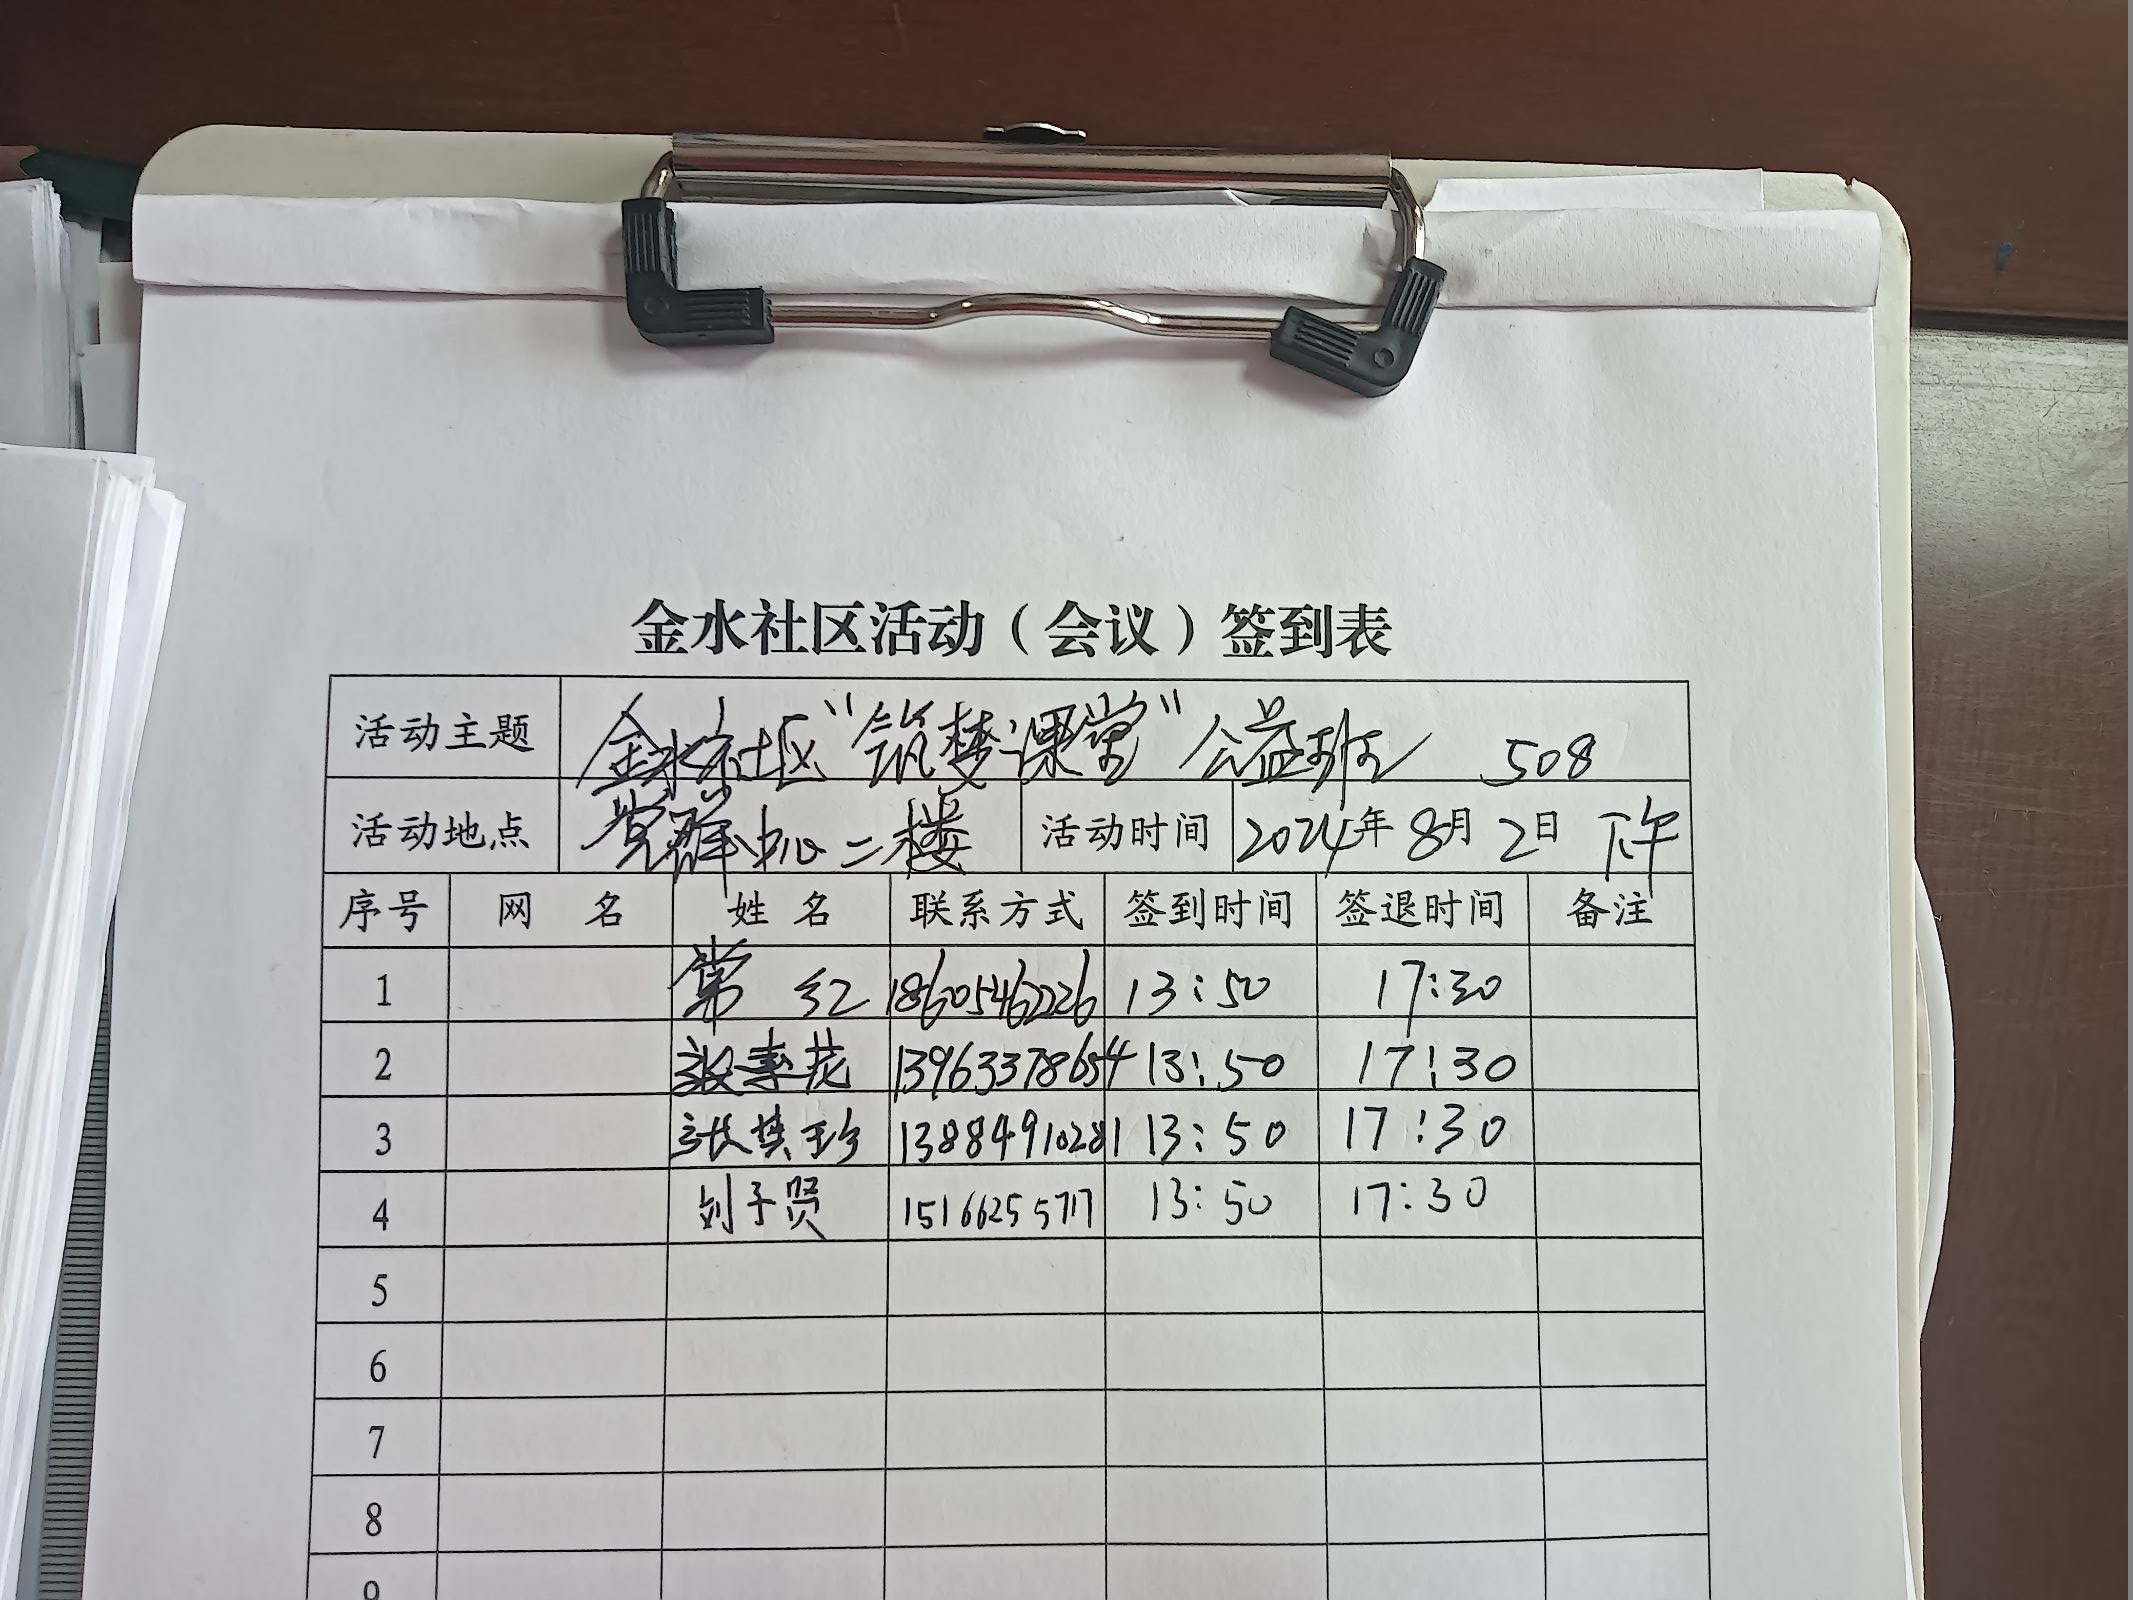 金水社区活动（会议）签到表
活动主题 金水社区“筑梦课堂”公益班 508
活动地点 党群中心二楼 活动时间 2024年8月2日 下午
序号 网 名 姓 名 联系方式 签到时间 签退时间 备注
1 常红 18605462226 13:50 17:30
2 13963378654 13:50 17:30
3 13884910281 13:50 17:30
4 刘子贤 15166255717 13:50 17:30
5
6
7
8
9